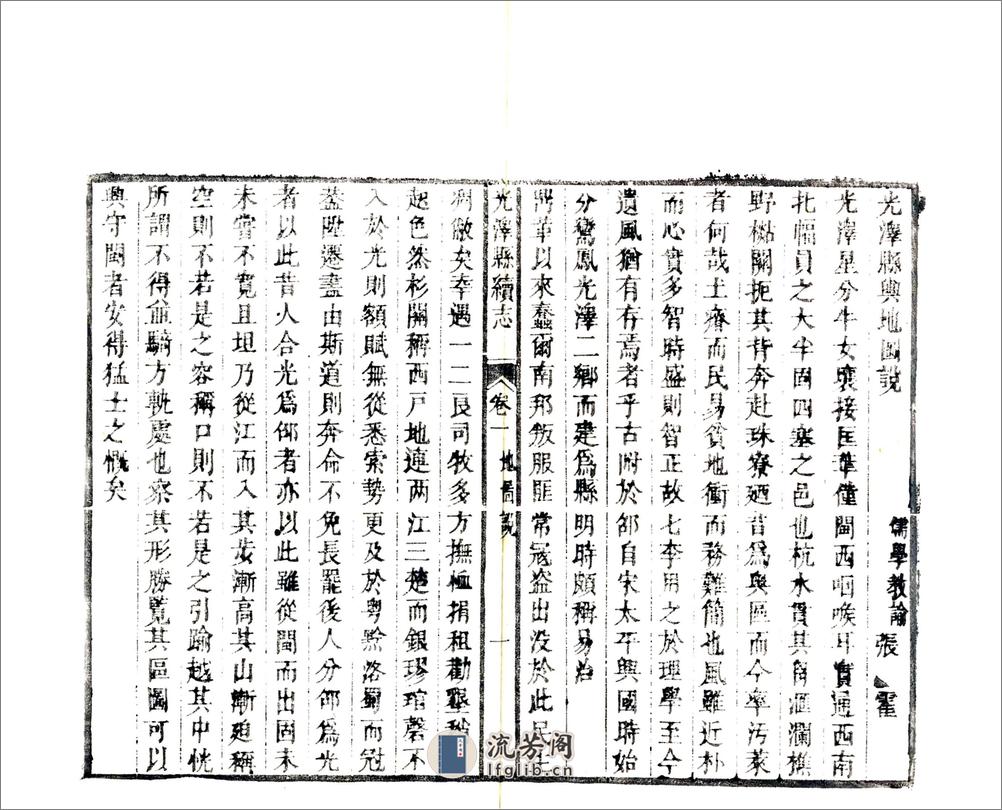 光澤縣輿地圖說
儒學教諭張霍
光澤星分牛女壤接匡華僅閩西咽喉耳實通西南
北幅員之大半固四塞之邑也杭水貫其角滙瀾樵
野樾關扼其背奔赴珠寮廼昔爲輿區而今率汚萊
者何哉土瘠而民易貧地衝而務難簡也風雖近朴
而心實多智時盛則智正故七李用之於理學至今
遺風猶有存焉者乎古附於邵自宋太平興國時始
分鸞鳳光澤二鄉而建爲縣明時頗稱易治
鼎革以來蠢爾南邦叛服匪常寇盜出没於此民生
光澤縣續志 卷一 地圖說 一
凋敝矣幸遇一二良司牧多方撫恤捐租勸墾稍
起色然杉關稱西戸地連两江三楚而銀璆琯磬不
入於光則額賦無從悉索勢更及於粤黔洛蜀而冠
葢陞遷盡由斯道則奔命不免長罷後人分邵爲光
者以此昔人合光爲邵者亦以此雖從閩而出固未
未嘗不寛且坦乃從江而入其岌漸高其山漸廹稱
空則不若是之容稱口則不若是之引踰越其中恍
所謂不得並騎方軌處也察其形勝覽其區圖可以
興守閩者安得猛士之慨矣
流芳阁
lfglib.cn